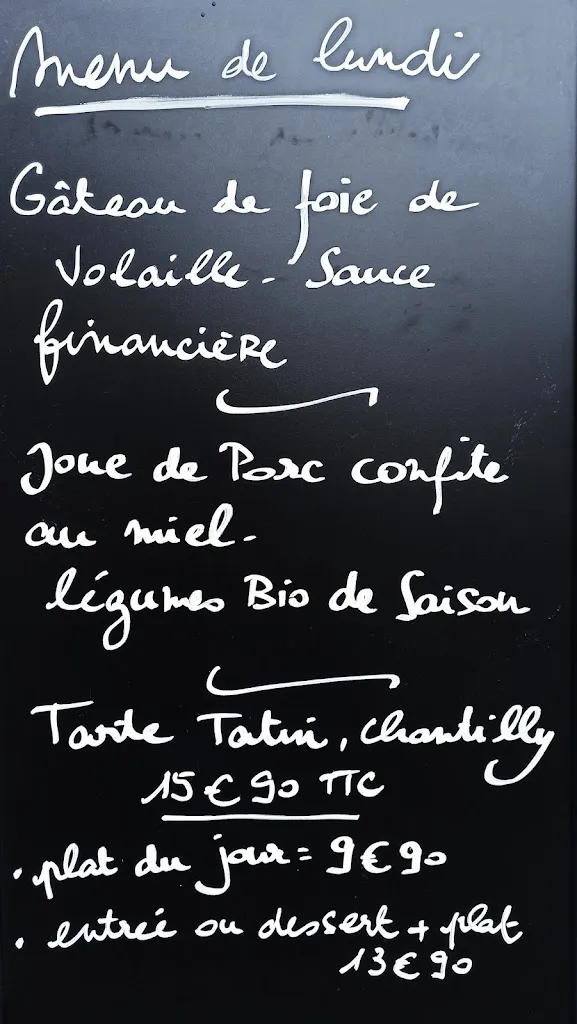 Menu de lundi
Gâteau de foie de
Volaille - Sauce
financière
Joue de Porc confite
au miel -
légumes Bio de Saison
Tarte Tatin, chantilly
15€90 TTC
• plat du jour = 9€90
• entrée ou dessert + plat
13€90